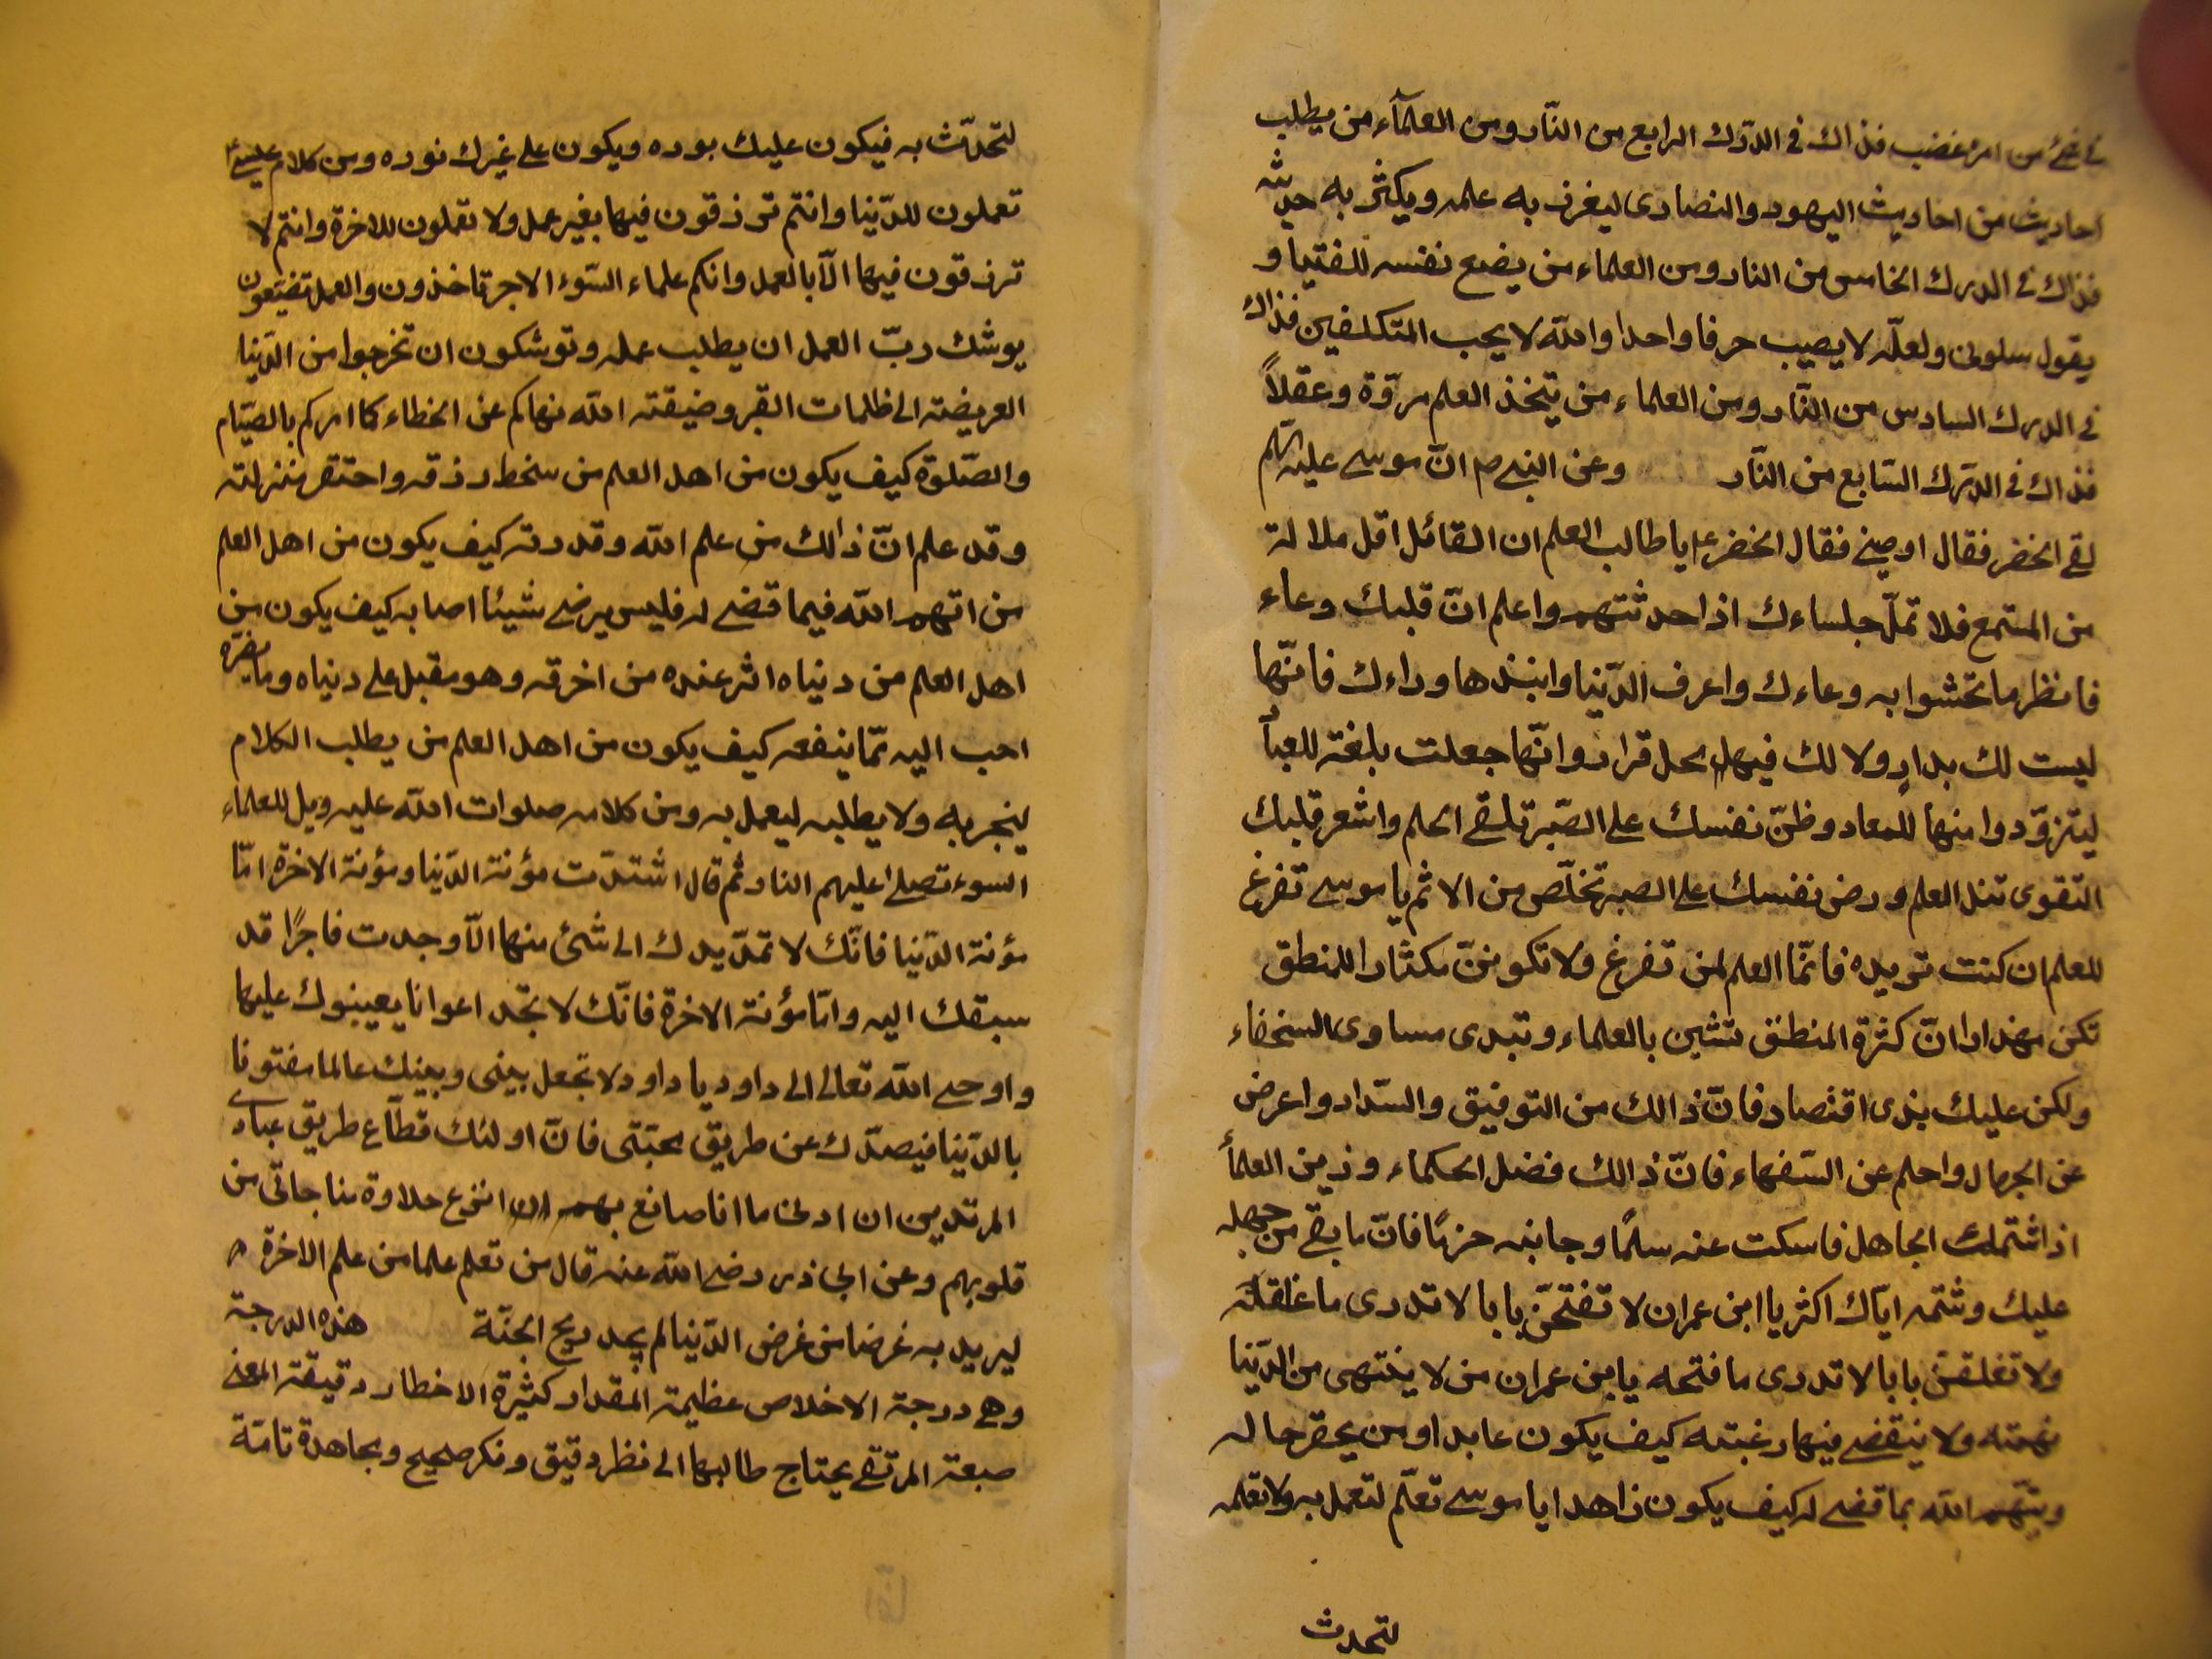 في شئ من امره غضب فذاك في الدّرك الرابع من النّار ومن العلمآء من يطلب
احاديث من احاديث اليهود والنصارى ليغرف به علمه ويكثر به حديثه
فذاك في الدرك الخامس من النار ومن العلماء من يضع نفسه للفتيا و
يقول سلوني ولعلّه لا يصيب حرفا واحدا والله لا يحب المتكلفين فذاك
في الدرك السادس من النّار ومن العلماء من يتخذ العلم مروّة وعقلاً
فذاك في الدّرك السّابع من النّار وعن النبي ص انّ موسى عليه السّلم
لقى الخضر فقال اوصني فقال الخضر ع يا طالب العلم ان القائل اقل ملالة
من المستمع فلا تملّ جلساءك اذا حدثتهم واعلم انّ قلبك وعاء
فانظر ما تحشوا به وعاءك واعرف الدّنيا وانبذها وراءك فانّها
ليست لك بدارٍ ولا لك فيها محل قرار وانّها جعلت بلغة للعباد
ليتزوّدوا منها للمعاد وظنّ نفسك على الصّبر تلقى الحلم واشعر قلبك
التقوى تنل العلم ورض نفسك على الصبر تخلّص من الاثم يا موسى تفرغ
للعلم ان كنت تريده فانّما العلم لمن تفرغ ولا تكوننّ مكثارا للمنطق
تكن مهذارا انّ كثرة المنطق تشين بالعلماء وتبدى مساوى السخفاء
ولكن عليك بذى اقتصاد فانّ ذالك من التوفيق والسّداد واعرض
عن الجهال واحلم عن السّفهاء فانّ ذالك فضل الحكماء وزين العلمأ
اذا شتمك الجاهل فاسكت عنه سلمًا وجانبه حزمًا فانّ ما بقي من جهله
عليك وشتمه ايّاك اكثر يا ابن عمران لا تفتحنّ بابا لا تدرى ما غلقه
ولا تغلقن بابا لا تدرى ما فتحه يابن عمران من لا ينتهى من الدّنيا
نهمته ولا ينقضي فيها رغبته كيف يكون عابدا ومن يحقر حاله
ويتّهم الله بما قضى له كيف يكون زاهدا يا موسى تعلّم لتعمل به ولا تعلمه
لتحدث
لتحدّث به فيكون عليك بوره ويكون على غيرك نوره ومن كلام عيسى ع
تعملون للدّنيا وانتم ترزقون فيها بغير عمل ولا تعملون للاخرة وانتم لا
ترزقون فيها الّا بالعمل وانكم علماء السّوء الاجر تاخذون والعمل تضيّعون
يوشك ربّ العمل ان يطلب عمله وتوشكون ان تخرجوا من الدّنيا
العريضة الى ظلمات القبر وضيقته الله نهاكم عن الخطاء كما امركم بالصّيام
والصّلوة كيف يكون من اهل العلم من سخط رزقه واحتقر منزلته
وقد علم انّ ذالك من علم الله وقدرته كيف يكون من اهل العلم
من اتهم الله فيما قضى له فليس يرضى شيئا اصابه كيف يكون من
اهل العلم من دنياه اثر عنده من اخرته وهو مقبل على دنياه وما يضرّه
احب اليه ممّا ينفعه كيف يكون من اهل العلم من يطلب الكلام
ليخبر به ولا يطلبه ليعمل به ومن كلامه صلوات الله عليه ويل للعلماء
السوء تصلى عليهم النار ثم قال اشتدّت مؤنة الدّنيا ومؤنة الاخرة امّا
مؤنة الدّنيا فانّك لا تمدّ يدك الى شئ منها الّا وجدت فاجرًا قد
سبقك اليه وامّا مؤنة الاخرة فانّك لا تجد اعوانا يعينوك عليها
واوحى الله تعالى الى داود يا داود لا تجعل بينى وبينك عالما مفتونا
بالدّنيا فيصدّك عن طريق محبّتى فانّ اولئك قطّاع طريق عبادى
المرتدين ان ادنى ما انا صانع بهم ان انزع حلاوة مناجاتى من
قلوبهم وعن ابى ذر رضى الله عنه قال من تعلم علما من علم الاخرة
ليريد به غرضا من غرض الدّنيا لم يجد ريح الجنّة هذه الدرجة
وهي درجة الاخلاص عظيمة المقدار كثيرة الاخطار دقيقة المعنى
صعبة المرتقى يحتاج طالبها الى نظر دقيق وفكر صحيح ومجاهدة تامّة